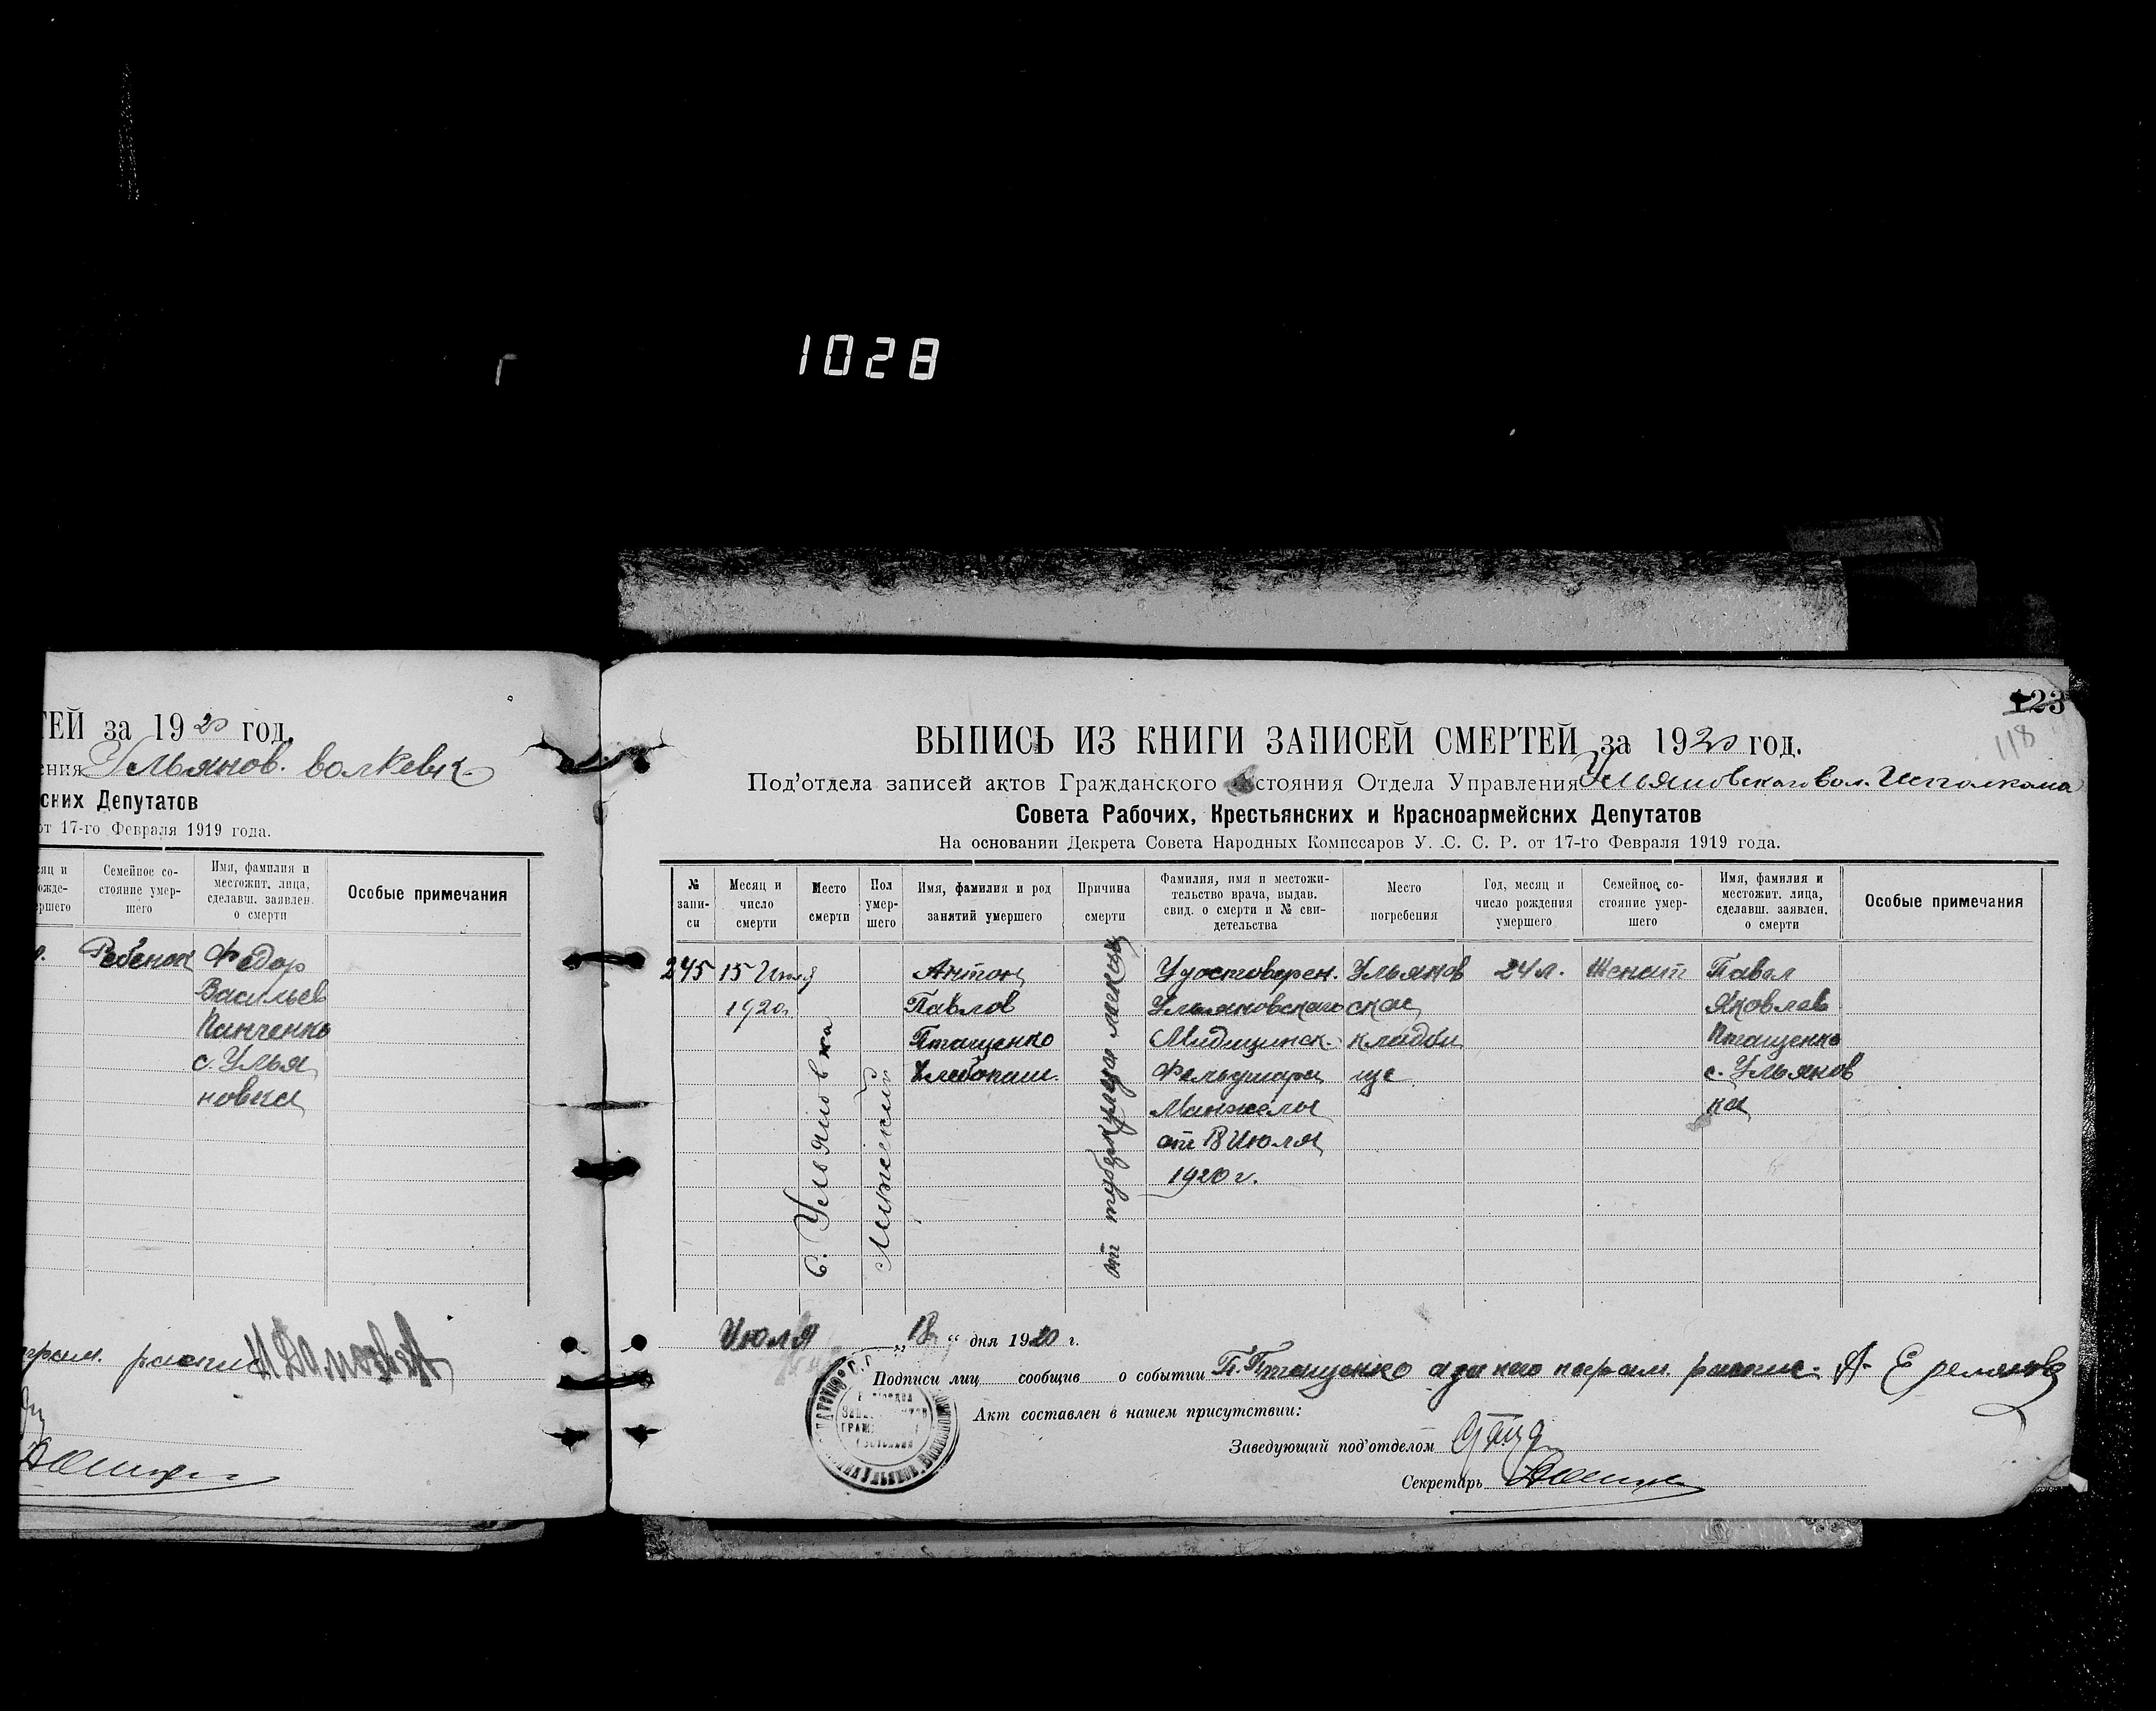 1028
ТЕЙ за 1920 год.
ения Ульянов. волкевк.
ских Депутатов
от 17-го Февраля 1919 года.
сяц и
ожде-
ершего
Семейное со-
стояние умер-
шего
Имя, фамилия и
местожит. лица,
сделавш. заявлен.
о смерти
Особые примечания
Ребенок
Федор
Васильев
Панченко
с. Улья
новка
грам. роспис
123
118
ВЫПИСЬ ИЗ КНИГИ ЗАПИСЕЙ СМЕРТЕЙ за 1920 год.
Под'отдела записей актов Гражданского состояния Отдела Управления Ульяновскаго вол. Исполкома
Совета Рабочих, Крестьянских и Красноармейских Депутатов
На основании Декрета Совета Народных Комиссаров У. С. С. Р. от 17-го Февраля 1919 года.
№
запи-
си
Месяц и
число
смерти
Место
смерти
Пол
умер-
шего
Имя, фамилия и род
занятий умершего
Причина
смерти
Фамилия, имя и местожи-
тельство врача, выдав.
свид. о смерти и № сви-
детельства
Место
погребения
Год, месяц и
число рождения
умершего
Семейное со-
стояние умер-
шего
Имя, фамилия и
местожит. лица,
сделавш. заявлен.
о смерти
Особые примечания
245
15 Июля
1920
с. Ульяновка
Мужеский
Антон
Павлов
Птащенко
Хлебопаш.
от туберкулеза легких
Удостоверен.
Ульяновскаго
Медицинск.
Фельдшара
Манжелы
от 18 Июля
1920 г.
Ульянов
ском
кладби
ще
24 л.
Женат
Павел
Яковлев
Птащенко
с. Ульянов
ка
Июля „18“ дня 1920 г.
Подписи лиц сообщив о событии П. Птащенко а за него неграм. роспис.
Акт составлен в нашем присутствии:
Заведующий под'отделом
Секретарь